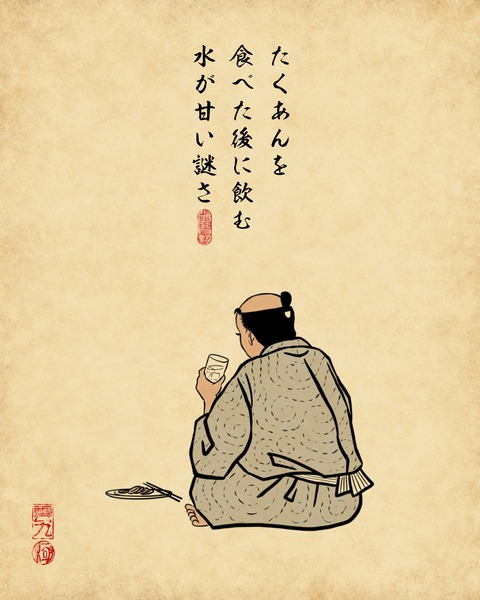 たくあんを
食べた後に飲む
水が甘い謎さ